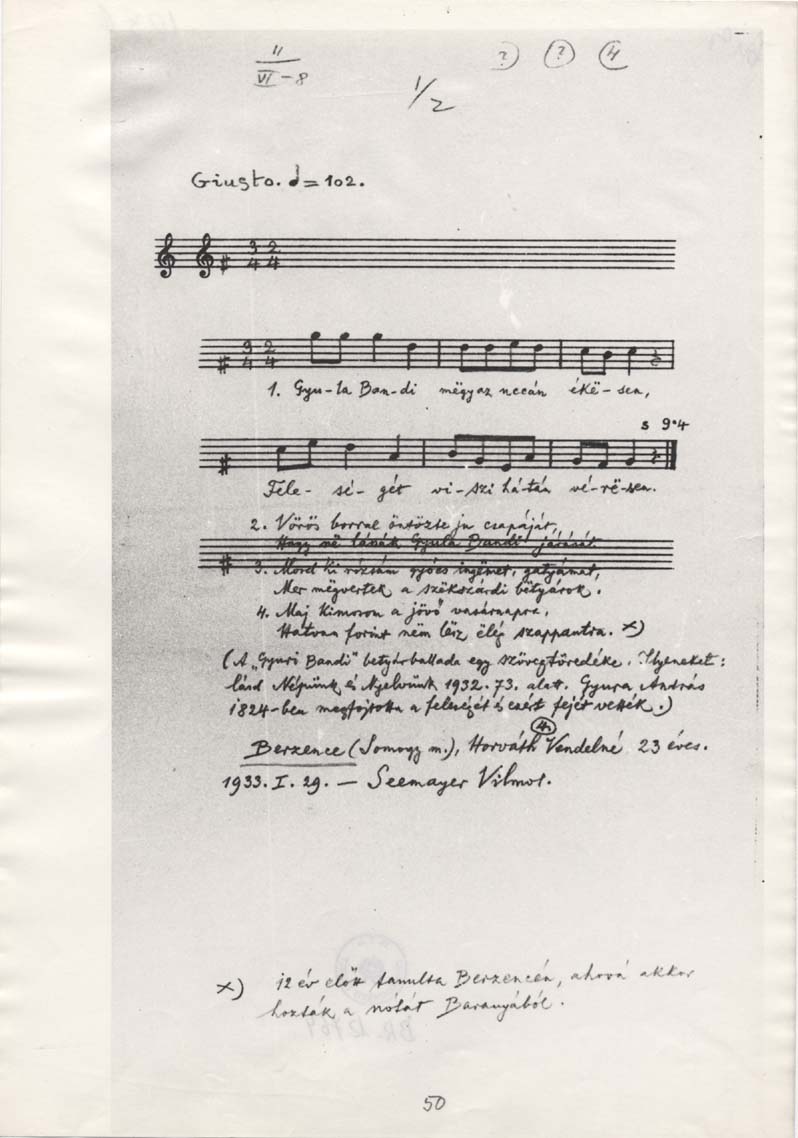 II
VI-8
? ? 4
1/2
Giusto. ♩=102.
3 2
4 4
3 2
4 4
1. Gyu-la Ban-di mëgyaz uccán ékë-sen,
s 9·4
Féle- sé- gét vi-szi há-tán vé-rë-sen.
2. Vörös borral öntözte csapáját,
Hogy në lássák Gyula Bandi járását.
3. Mosd ki rózsám gyócs ingëmet, gatyámat,
Mer mëgvertek a szëkszárdi bëtyárok.
4. Maj kimosom a jövő vasárnapra,
Hatvan forint nëm lësz ëlég szappantra. x)
(A „Gyuri Bandi" betyárballada egy szövegtöredéke. Ilyeneket:
lásd Népünk és Nyelvünk 1932. 73. alatt. Gyura András
1824-ben megfojtotta a feleségét és ezért fejét vették.)
4.
Berzence (Somogy m.), Horváth Vendelné 23 éves.
1933. I. 29. — Seemayer Vilmos.
x) 12 év előtt tanulta Berzencén, ahová akkor
hozták a nótát Baranyából.
50